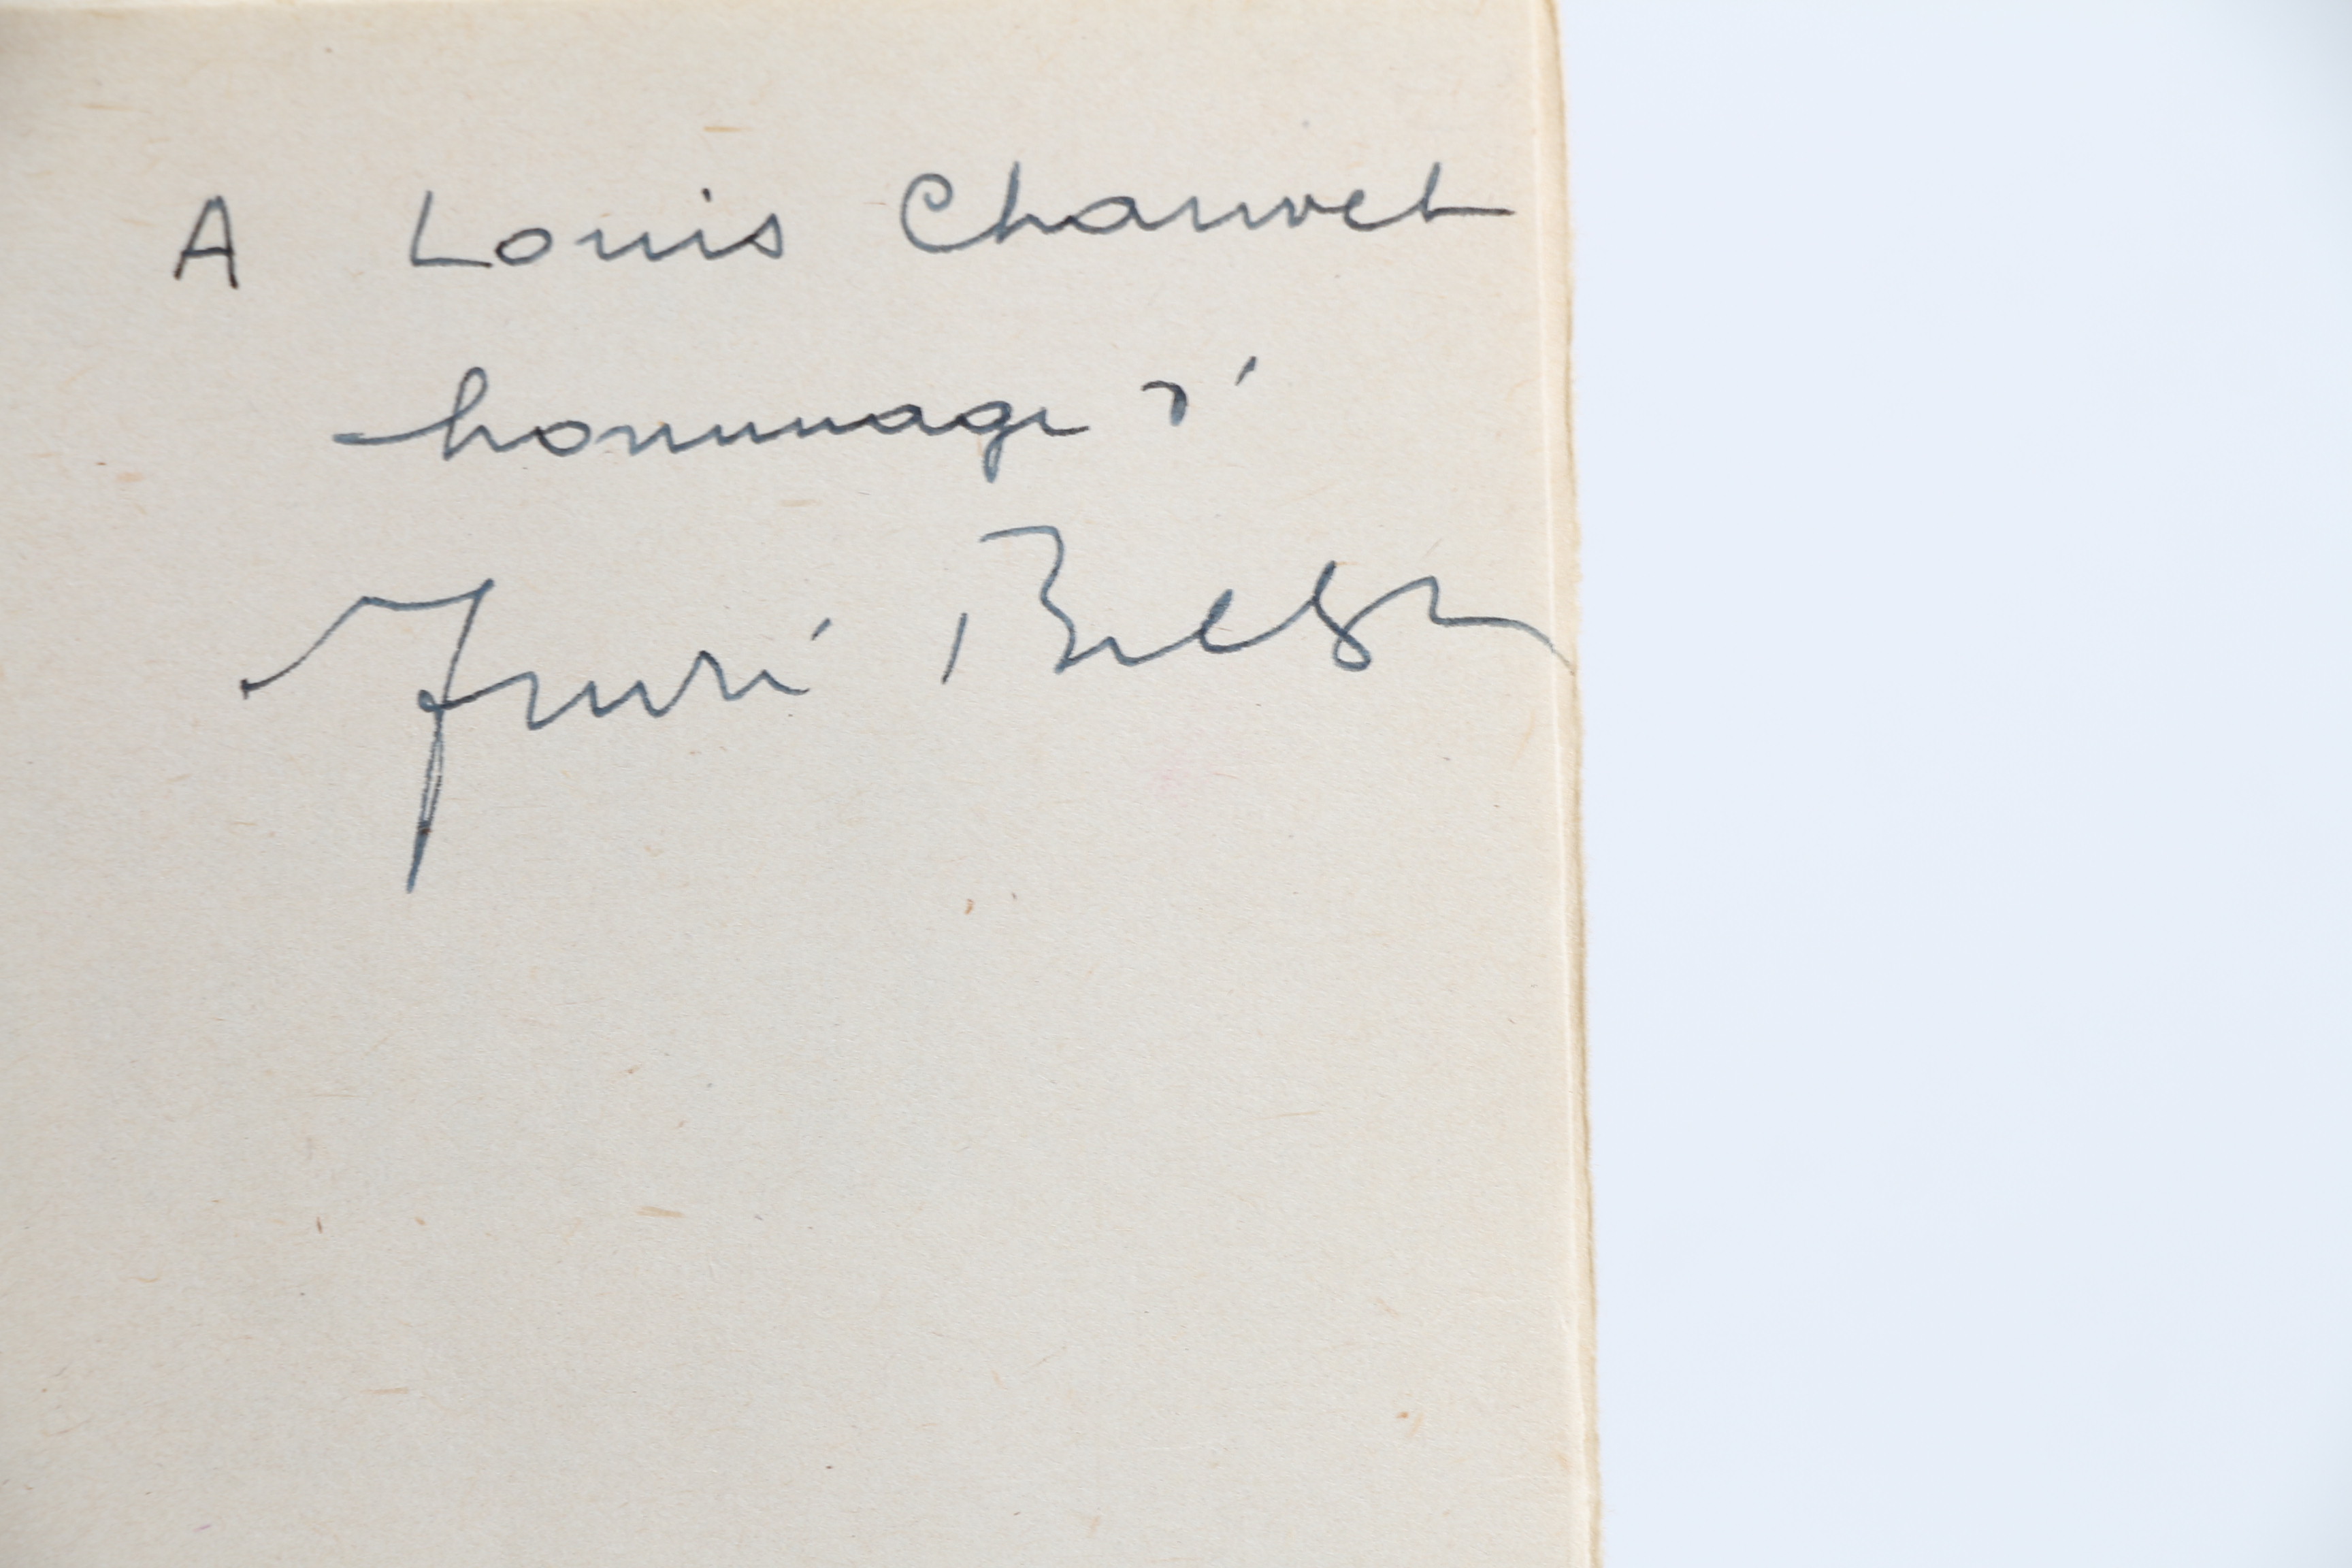 A Louis Chauvet
hommage d'
André Breton